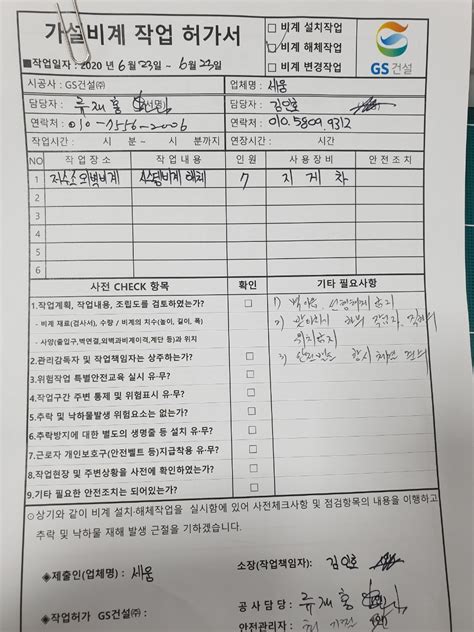 가설비계 작업 허가서
□ 비계 설치작업
□ 비계 해체작업
□ 비계 변경작업
GS건설
■작업일자 : 2020 년 6 월 23일 ~ 6 월 23일
시공사 : GS건설㈜
업체명 : 세움
담당자 : 류재홍
담당자 : 김인호
연락처 : 010-7556-2006
연락처 : 010.5809.9312
작업시간 : 시 분~ 시 분까지
연장시간 : 시간
NO 작 업 장 소 작 업 내 용 인 원 사 용 장 비 안 전 조 치
1 저수조 외벽비계 시스템비계 해체 7 지게차
2
3
4
5
6
사전 CHECK 항목 확인 기타 필요사항
1.작업계획, 작업내용, 조립도를 검토하였는가? □
- 비계 재료(검사서), 수량 / 비계의 치수(높이, 길이, 폭)
- 사양(출입구,벽연결,외벽과비계이격,계단 등)과 위치
2.관리감독자 및 작업책임자는 상주하는가? □
3.위험작업 특별안전교육 실시 유·무? □
4.작업구간 주변 통제 및 위험표시 유·무? □
5.추락 및 낙하물발생 위험요소는 없는가? □
6.추락방지에 대한 별도의 생명줄 등 설치 유·무? □
7.근로자 개인보호구(안전벨트 등)지급착용 유·무? □
8.작업현장 및 주변상황을 사전에 확인하였는가? □
9.기타 필요한 안전조치는 되어있는가? □
1)
2)
3)
⊙상기와 같이 비계 설치·해체작업을 실시함에 있어 사전체크사항 및 점검항목의 내용을 이행하고
추락 및 낙하물 재해 발생 근절을 기하겠습니다.
◆제출인(업체명) : 세움
소장(작업책임자) : 김인호
◆작업허가 GS건설㈜ :
공 사 담 당 : 류재홍
안전관리자 :